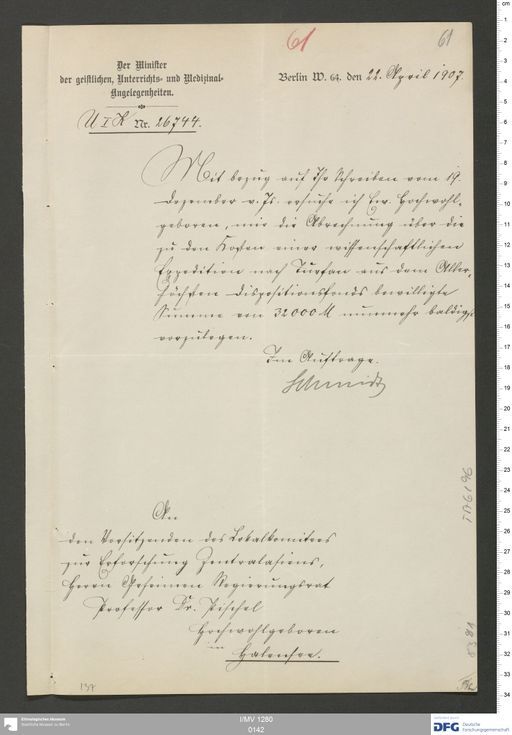 61
61
Der Minister
der geistlichen, Unterrichts- und Medizinal-
Angelegenheiten.
Berlin W. 64. den 22. April 1907
U I K Nr. 26744.
Mit bezug auf Ihr Schreiben vom 19.
Dezember v. Js. ersuche ich Ew. Hochwohl-
geboren, mir die Abrechnung über die
zu den Kosten einer wissenschaftlichen
Expedition nach Turfan aus dem Aller-
höchsten Dispositionsfonds bewilligte
Summe von 32000 M nunmehr baldigst
vorzulegen.
Im Auftrage.
Schmidt
An
den Vorsitzenden des Lokalkomitees
zur Erforschung Zentralasiens,
Herrn Geheimen Regierungsrat
Professor Dr. Pischel
Hochwohlgeboren
in
Halensee.
TA 6196
8381
137
Ethnologisches Museum
Staatliche Museen zu Berlin
I/MV 1260
0142
gefördert durch
DFG
Deutsche
Forschungsgemeinschaft
cm
1
2
3
4
5
6
7
8
9
10
11
12
13
14
15
16
17
18
19
20
21
22
23
24
25
26
27
28
29
30
31
32
33
34